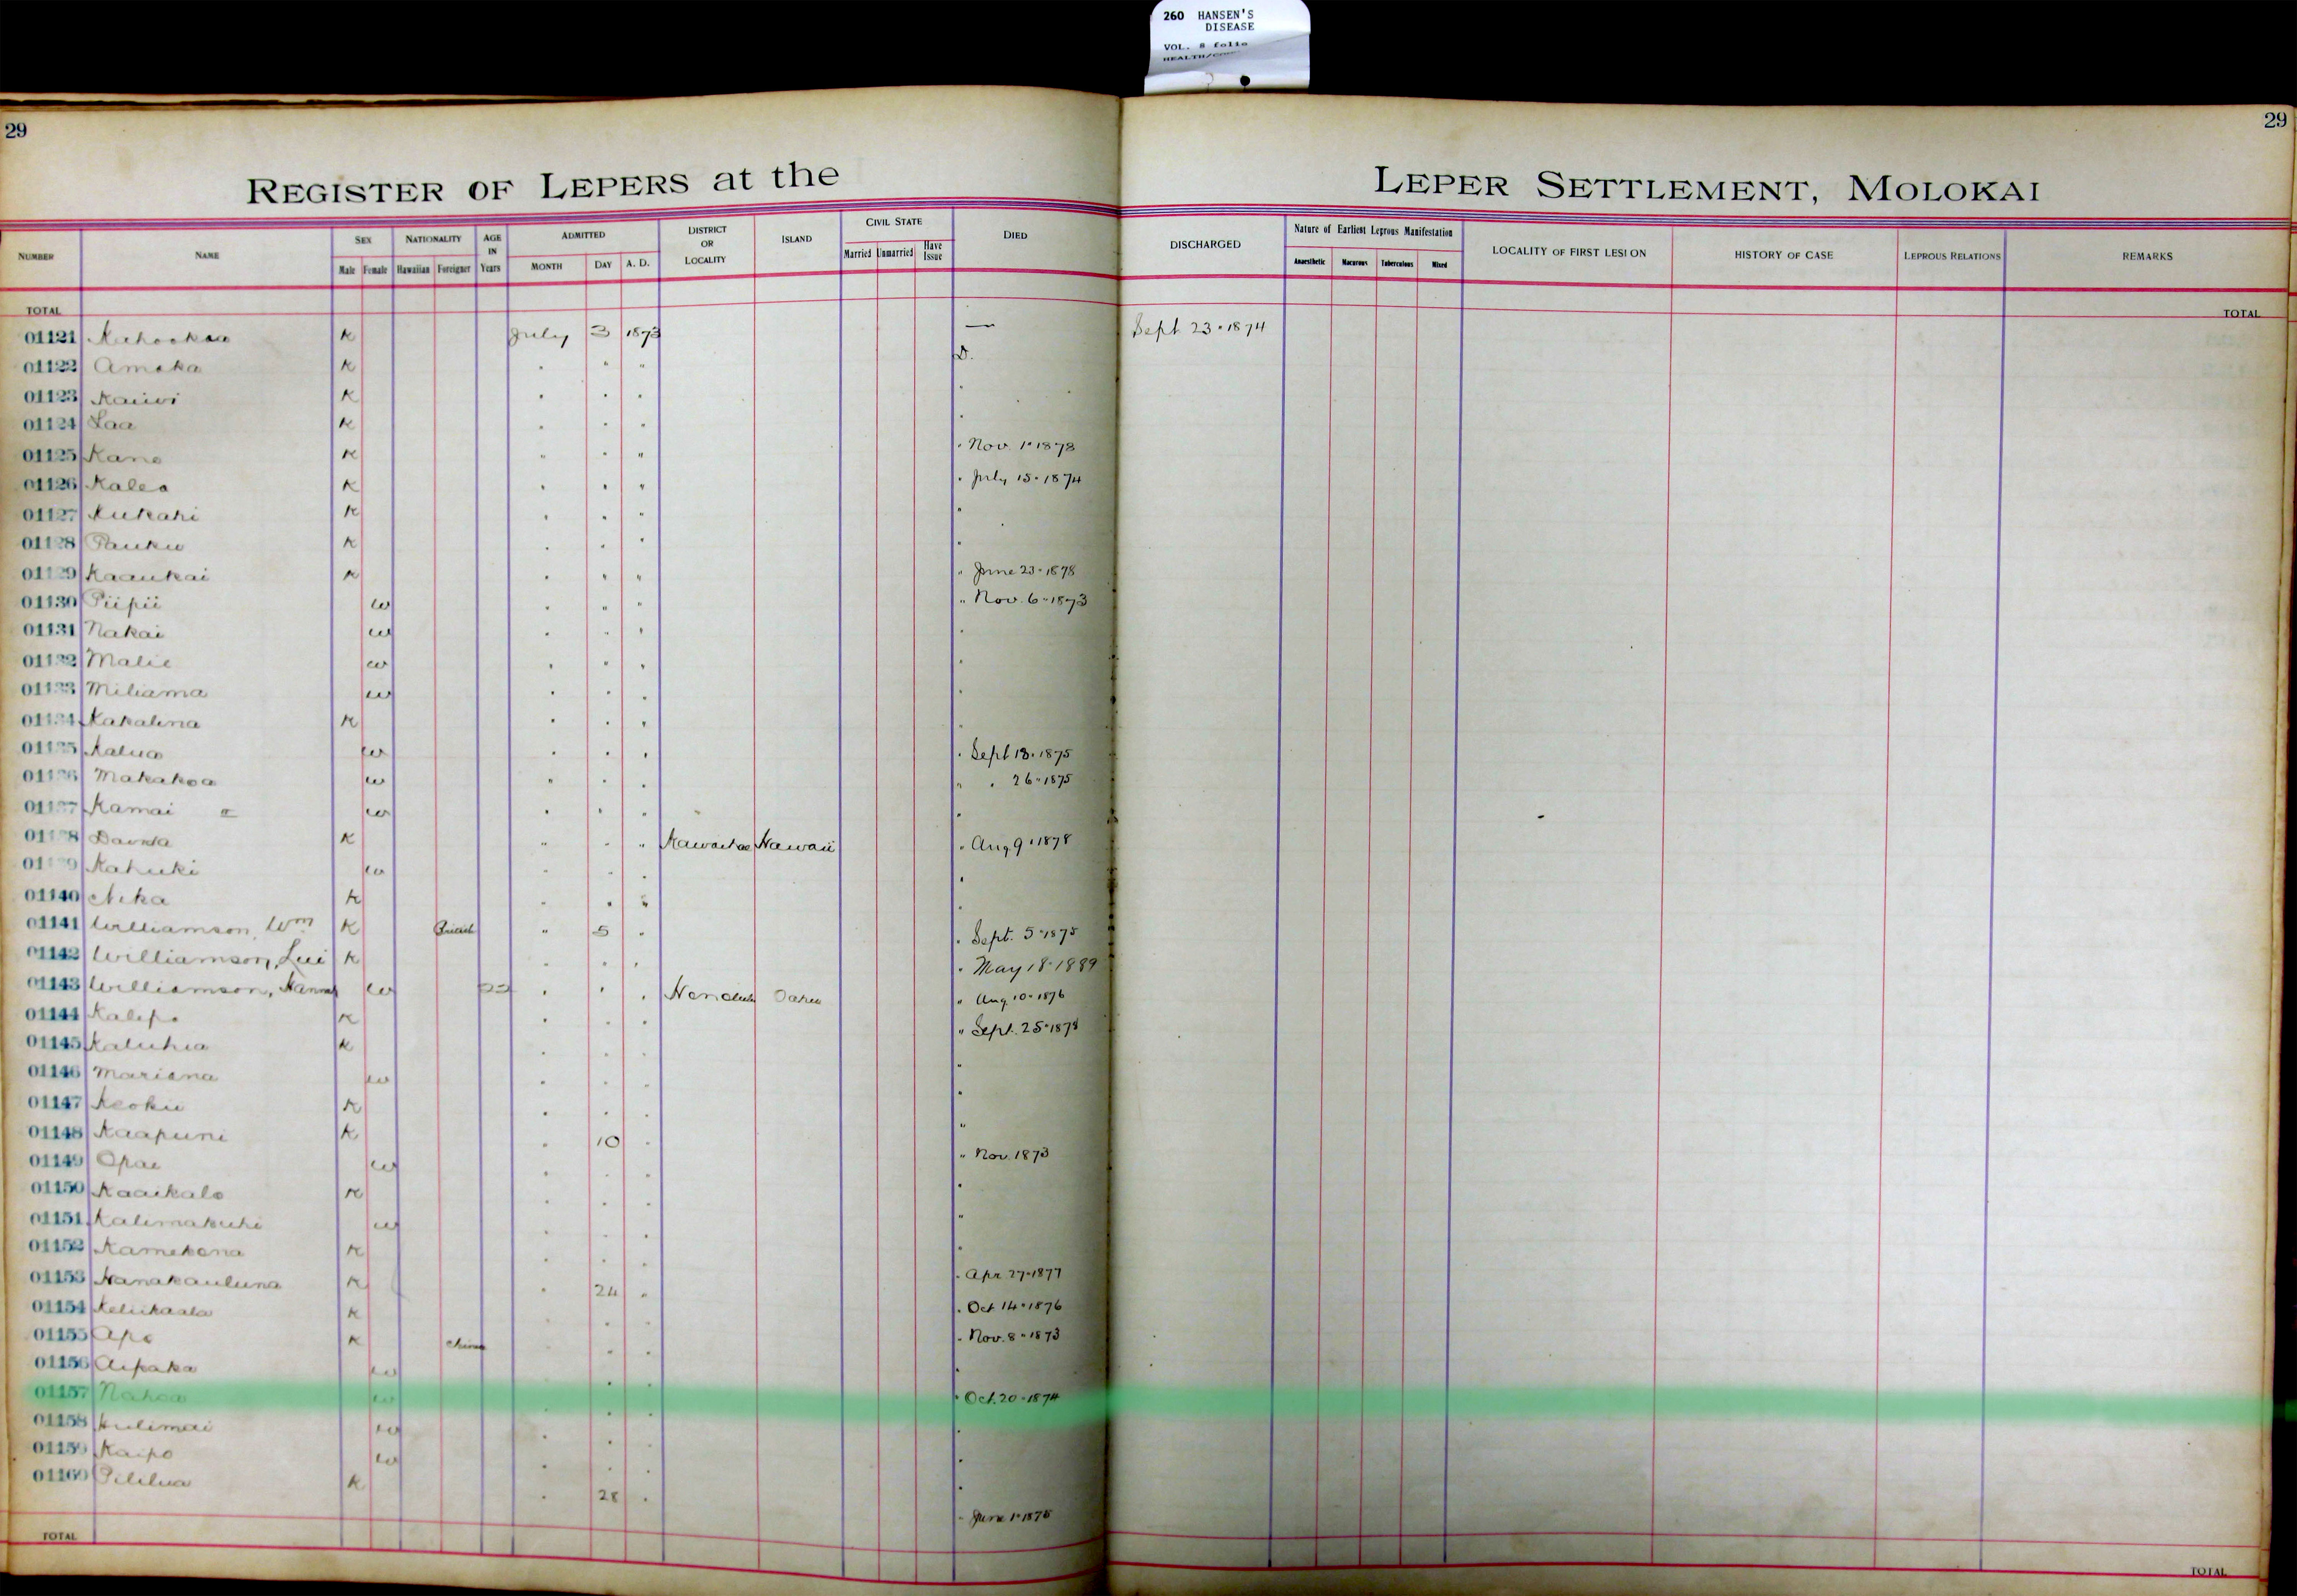 260 HANSEN'S
DISEASE
VOL. 8 folio
29
29
REGISTER OF LEPERS at the LEPER SETTLEMENT, MOLOKAI
NUMBER NAME SEX NATIONALITY AGE IN Years ADMITTED DISTRICT OR LOCALITY ISLAND CIVIL STATE DIED DISCHARGED Nature of Earliest Leprous Manifestation LOCALITY OF FIRST LESION HISTORY OF CASE LEPROUS RELATIONS REMARKS
Male Female Hawaiian Foreigner MONTH DAY A. D. Married Unmarried Have Issue Anaesthetic Macurous Tuberculous Mixed
TOTAL TOTAL
01121 K July 3 1873 — Sept 23 " 1874
01122 Amaka K " " " D.
01123 Kaiwi K " " " "
01124 Laa K " " " "
01125 Kane K " " " " Nov. 1 " 1878
01126 Kalea K " " " " July 15 " 1874
01127 Kukahi K " " " "
01128 Pauku K " " " "
01129 Kaaukai K " " " " June 23 " 1878
01130 Piipii w " " " " Nov. 6 " 1873
01131 Nakai w " " " "
01132 Malie w " " " "
01133 Miliama w " " " "
01134 Kakalina K " " " "
01135 Kalua w " " " " Sept 18 " 1875
01136 Makakoa w " " " " " 26 " 1875
01137 Kamai w " " " "
01138 K " " " Kawaihae Hawaii " Aug 9 " 1878
01139 Kahuki w " " " "
01140 Nika K " " " "
01141 Williamson, Wm K British " 5 " " Sept. 5 " 1875
01142 Williamson, Lui K " " " " May 18 " 1889
01143 Williamson, w " " " Honolulu Oahu " Aug. 10 " 1876
01144 Kalepo K " " " " Sept. 25 " 1878
01145 Kaluhia K " " " "
01146 Mariana w " " " "
01147 Keoku K " " " "
01148 Kaapuni K " 10 " "
01149 Opae w " " " " Nov. 1873
01150 Kaaikalo K " " " "
01151 Kalimakuhi w " " " "
01152 Kamekona K " " " "
01153 Nanakauluna K " 24 " " Apr 27 " 1877
01154 Keliikaala K " " " " Oct 14 " 1876
01155 Apo K China " " " " Nov. 8 " 1873
01156 Aipaka w " " " "
01157 Nahoa w " " " " Oct. 20 " 1874
01158 Hulimai w " " " "
01159 Kaipo w " " " "
01160 Pililua K " 28 " " June 1 " 1875
TOTAL TOTAL